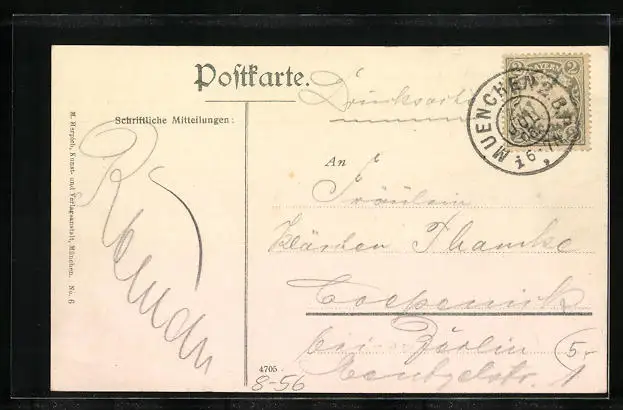 Postkarte.
Drucksache
Schriftliche Mitteilungen:
An
Fräulein
Thamke
Coepenick
bei Berlin
1
5-
4705
8-56
M. Herpich, Kunst- und Verlagsanstalt, München. No. 6
2 BAYERN 2
MUENCHEN 2 B.P.